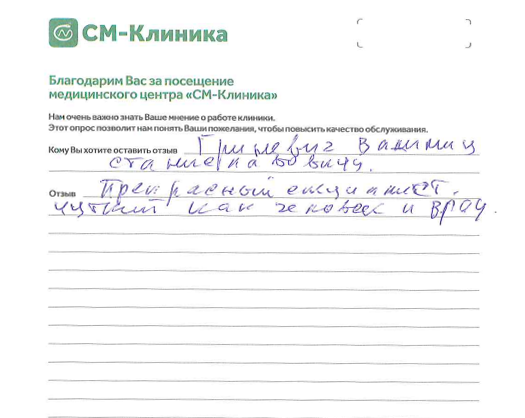 СМ-Клиника
Благодарим Вас за посещение
медицинского центра «СМ-Клиника»
Нам очень важно знать Ваше мнение о работе клиники.
Этот опрос позволит нам понять Ваши пожелания, чтобы повысить качество обслуживания.
Кому Вы хотите оставить отзыв
Станиславовичу.
Отзыв Прекрасный специалист.
чуткий как человек и врач.